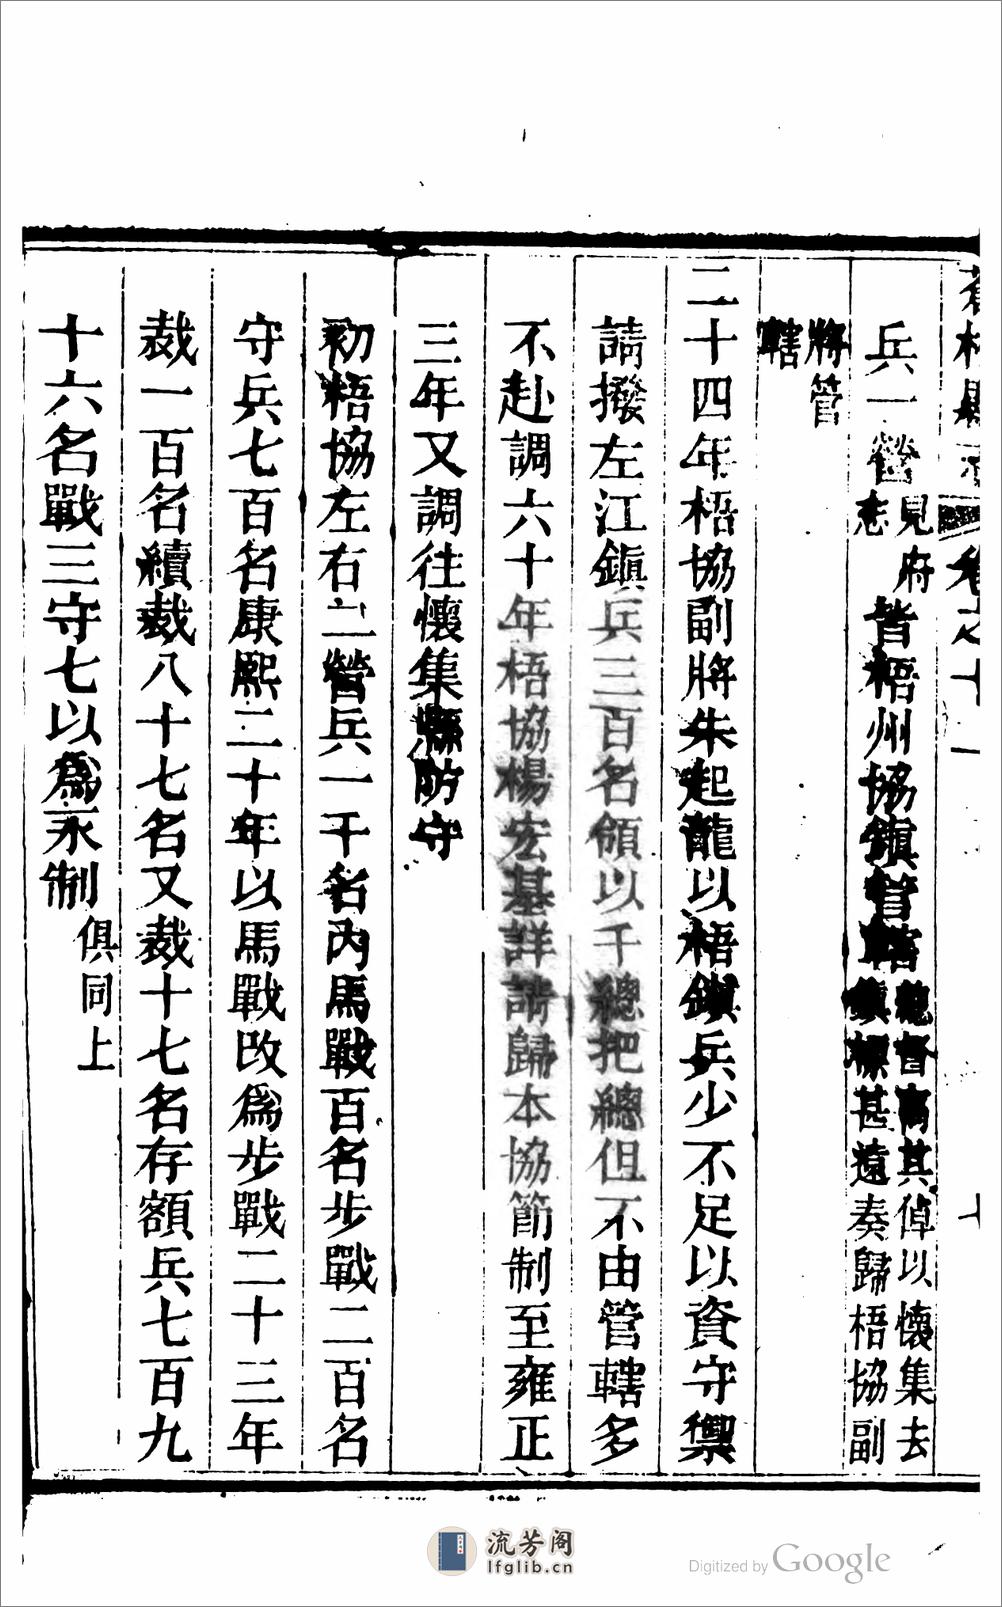 蒼梧縣志 卷之十一 十
兵一營見府志皆梧州協鎮管轄總督高其倬以懷集去鎮標甚遠奏歸梧協副
將管轄
二十四年梧協副將朱起龍以梧鎮兵少不足以資守禦
請撥左江鎮兵三百名領以千總把總但不由管轄多
不赴調六十年梧協楊宏基詳請歸本協節制至雍正
三年又調往懷集縣防守
初梧協左右二營兵一千名內馬戰百名步戰二百名
守兵七百名康熙二十年以馬戰改爲步戰二十三年
裁一百名續裁八十七名又裁十七名存額兵七百九
十六名戰三守七以爲永制俱同上
流芳阁
lfglib.cn
Digitized by Google